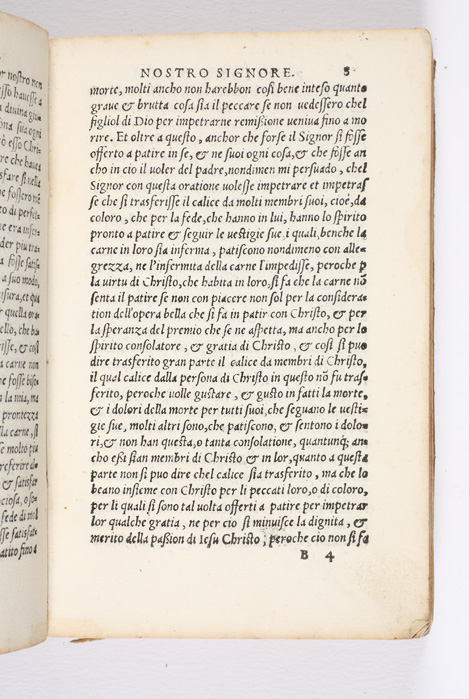 NOSTRO SIGNORE. 8
morte, molti ancho non harebbon così bene inteso quanto
graue & brutta cosa sia il peccare se non uedessero chel
figliol di Dio per impetrarne remißione veniua fino a mo
rire. Et oltre a questo, anchor che forse il Signor si fosse
offerto a patire in se, & ne suoi ogni cosa, & che fosse an
cho in cio il uoler del padre, nondimen mi persuado, chel
Signor con questa oratione uolesse impetrare et impetras
se che si trasferisse il calice da molti membri suoi, cioè, da
coloro, che per la fede, che hanno in lui, hanno lo spirito
pronto a patire & seguir le uestigie sue, i quali, benche la
carne in loro sia inferma, patiscono nondimeno con alle=
grezza, ne l'infermita della carne l'impedisse, peroche p
la virtu di Christo, che habita in loro, si fa che la carne nõ
senta il patire se non con piacere non sol per la considera=
tion dell'opera bella che si fa in patir con Christo, & per
la speranza del premio che se ne aspetta, ma ancho per lo
spirito consolatore, & gratia di Christo, & così si puo
dire trasferito gran parte il calice da membri di Christo,
il qual calice dalla persona di Christo in questo nõ fu tras=
ferito, peroche uolle gustare, & gusto in fatti la morte,
& i dolori della morte per tutti suoi, che seguano le uesti=
gie sue, molti altri sono, che patiscono, & sentono i dolo=
ri, & non han questa, o tanta consolatione, quantunq; an=
cho eßi sian membri di Christo & in lor, quanto a questa
parte non si puo dire chel calice sia trasferito, ma che lo
beano insieme con Christo per li peccati loro, o di coloro,
per li quali si sono tal uolta offerti a patire per impetrar
lor qualche gratia, ne per cio si minuisce la dignita, &
merito della paßion di Iesu Christo, peroche cio non si fa
B 4